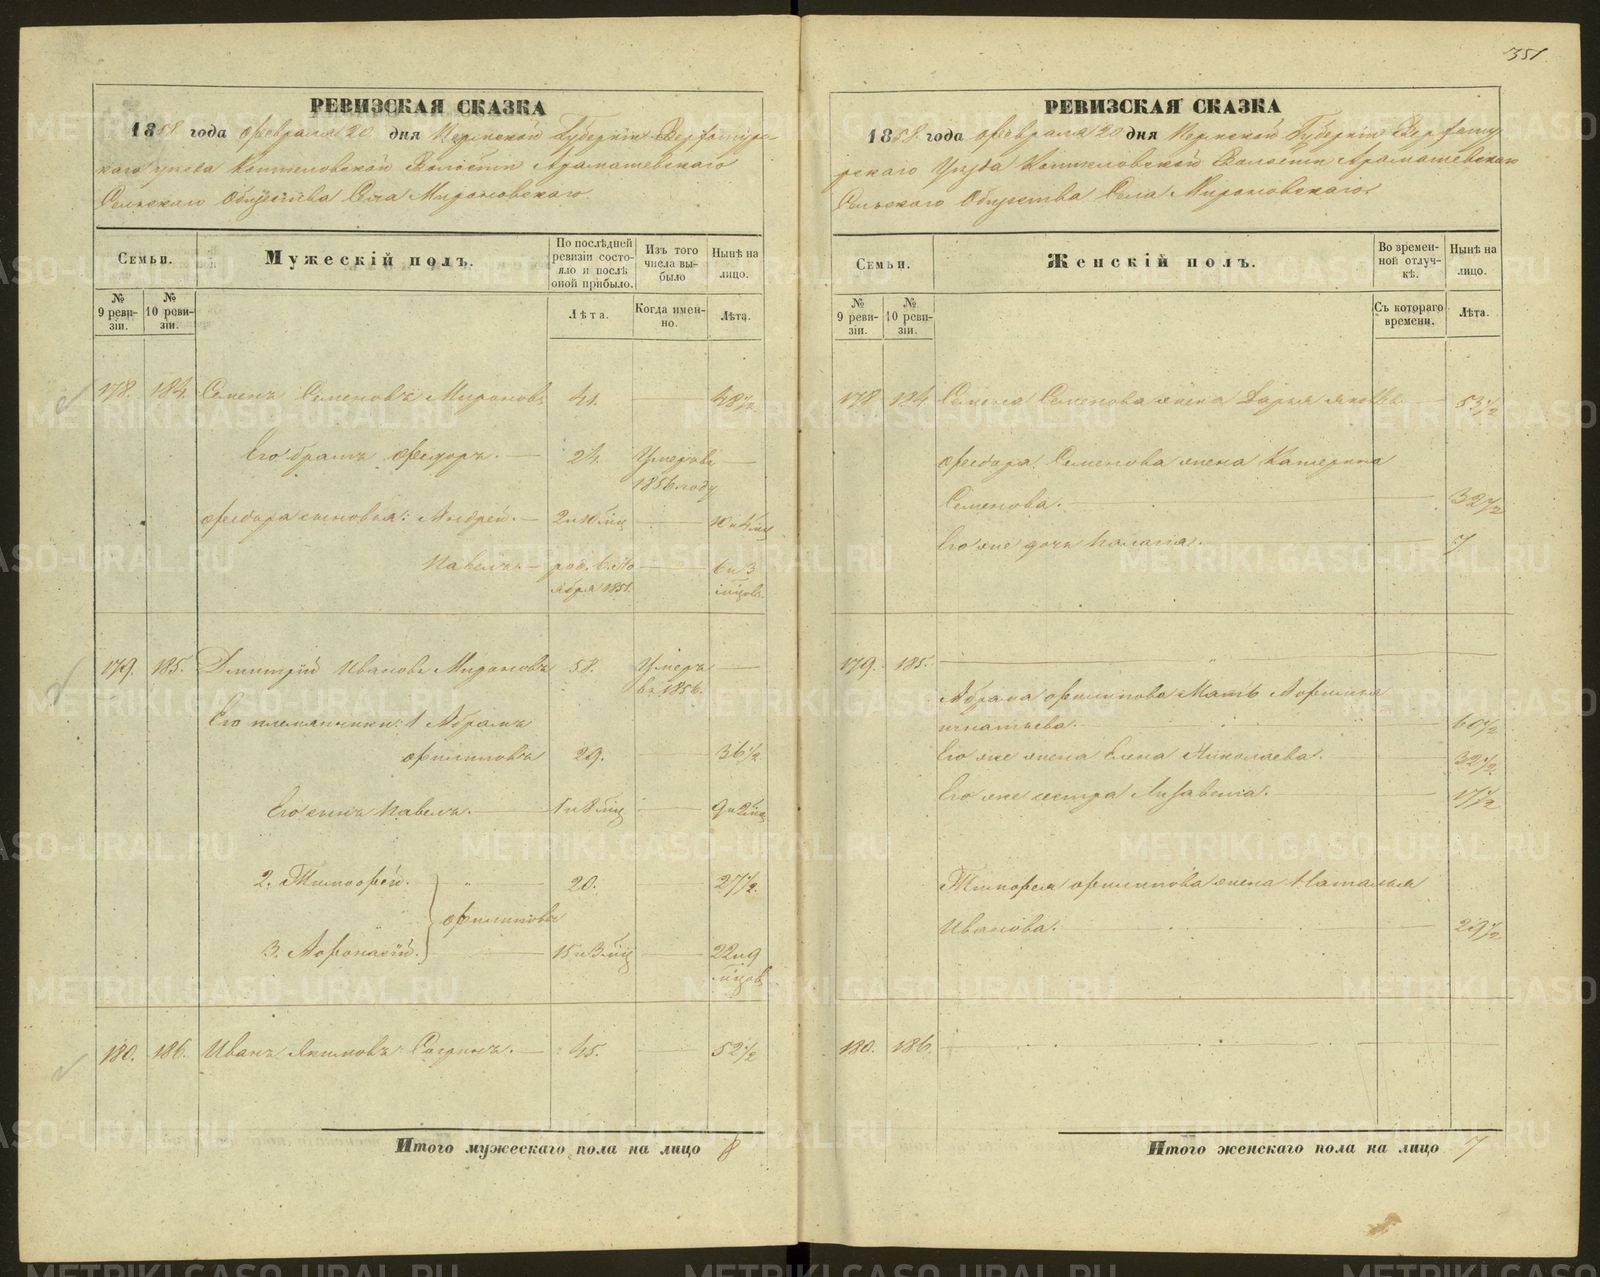 351
РЕВИЗСКАЯ СКАЗКА
1858 года февраля 20 дня Пермской Губернии Верхотурс-
каго уезда Коптеловской Волости Арамашевскаго
Сельскаго Общества Села Мироновскаго.
Семьи.
Мужескій полъ.
По послѣдней ревизіи состояло и послѣ оной прибыло.
Изъ того числа выбыло
Нынѣ на лицо.
№ 9 ревизіи.
№ 10 ревизіи.
Лѣта.
Когда именно.
Лѣта.
178. 184. Семенъ Семеновъ Мироновъ 41. 48½
Его братъ Федоръ. 24. Умеръ въ
1856 году
Федора сыновья: Андрей. 2 и 10 мц 10 и 4 мц
Павелъ. род. 6. Но 6 и 3
ября 1851. мцовъ
179. 185. Дмитрій Ивановъ Мироновъ 58. Умеръ
въ 1856.
Его племянники: 1 Абрамъ
Филиповъ 29. 36½
Его сынъ Павелъ. 1 и 8 мц 9 и 2 мц
2. Тимофей. 20. 27½
Филиповы
3. Афонасій. 15 и 3 мц 22 и 9
мцов
180. 186. Иванъ Якимовъ 45. 52½
Итого мужескаго пола на лицо 8
РЕВИЗСКАЯ СКАЗКА
1858 года февраля 20 дня Пермской Губернии Верхоту
рскаго Уезда Коптеловской Волости Арамашевскаго
Сельскаго Общества Села Мироновскаго
Семьи.
Женскій полъ.
Во временной отлучкѣ.
Нынѣ на лицо.
№ 9 ревизіи.
№ 10 ревизіи.
Съ котораго времени.
Лѣта.
178 184. Семена Семенова жена Дарья 53½
Федора Семенова жена Катерина
Семенова. 32½
Его же дочь Палагея. 7
179. 185.
Абрама Филипова Мать Афимия
Игнатьева. 60½
Его же жена Елена Николаева. 32½
Его же сестра Лизавета. 17½
Тимофея Филипова жена Наталья
Иванова. 29½
180. 186.
Итого женскаго пола на лицо 7
METRIKI.GASO-URAL.RU